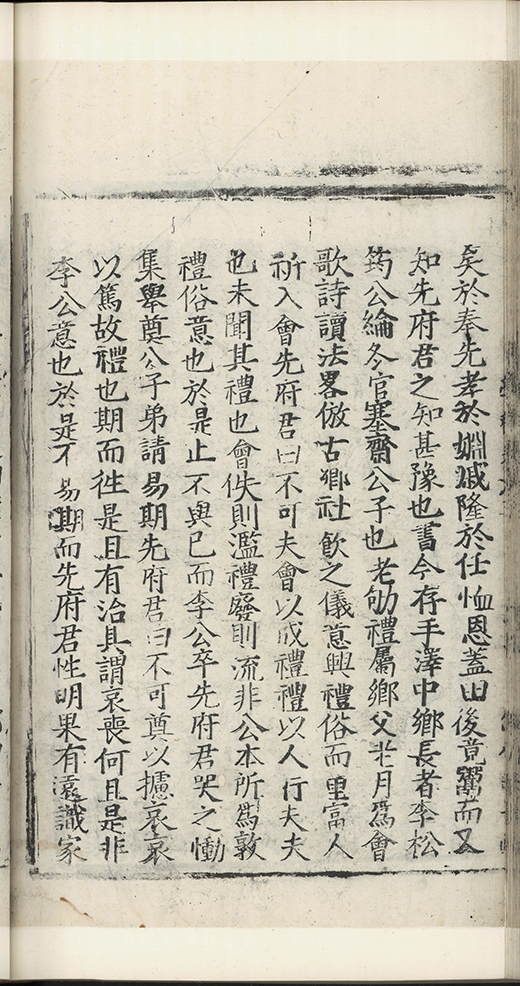 矣於奉先孝於婣戚隆於任恤恩蓋田後竟鬻而又
知先府君之知甚豫也書今存手澤中鄉長者李松
筠公綸冬官塞齋公子也老劬禮屬鄉父老月為會
歌詩讀法畧倣古鄉社飲之儀意興禮俗而里富人
祈入會先府君曰不可夫會以成禮禮以人行夫夫
也未聞其禮也會佚則濫禮廢則流非公本所為敦
禮俗意也於是止不與已而李公卒先府君哭之慟
集舉奠公子弟請易期先府君曰不可奠以攄哀哀
以篤故禮也期而徃是且有治具謂哀喪何且是非
李公意也於是不易期而先府君性明果有遠識家